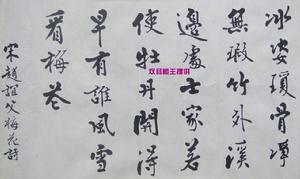 冰姿瓊骨淨
無瑕竹外溪
邊處士家若
使牡丹開得
早有誰風雪
看梅花
宋趙諠父梅花詩
双耳瓶王提供